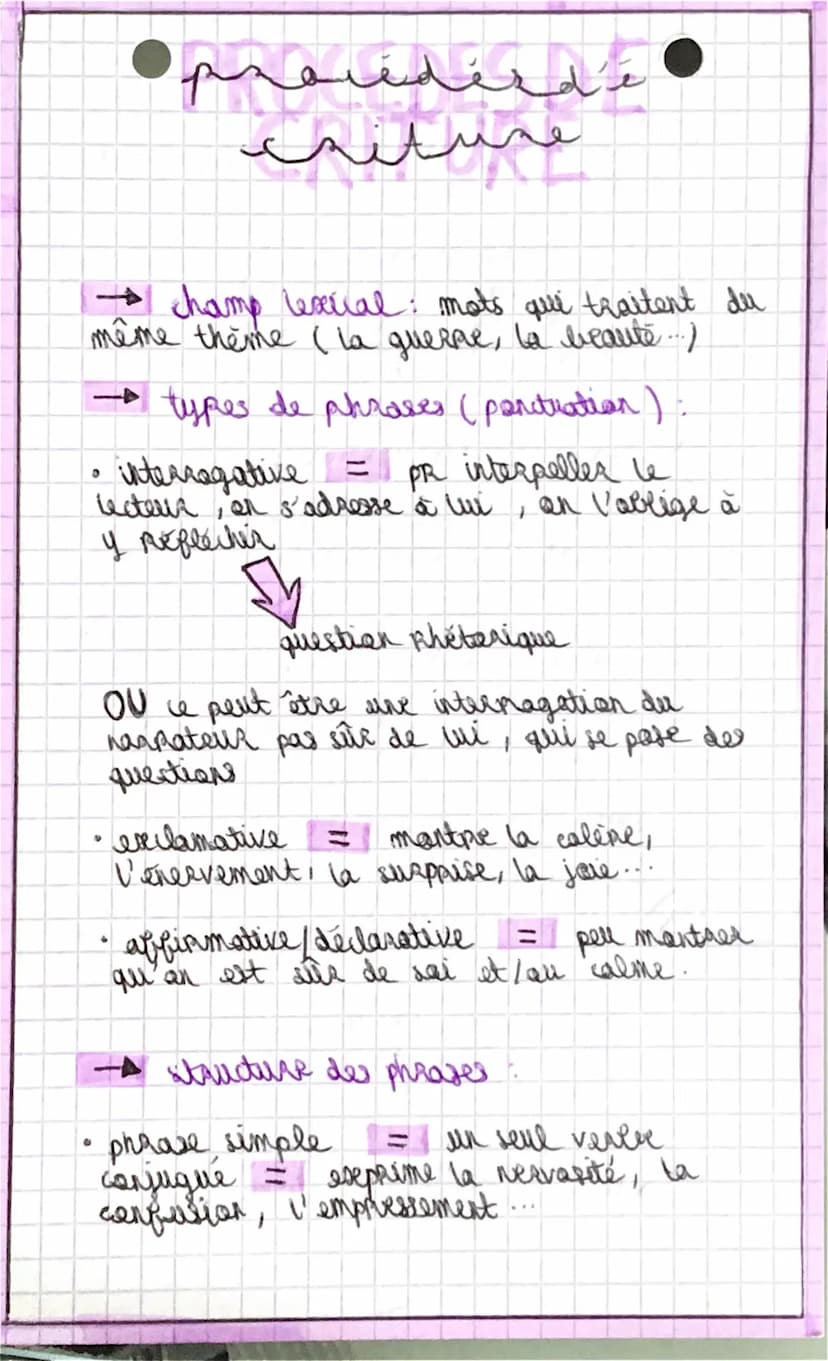 procédés d'é
criture
→ champ lexical : mots qui traitent du
même thème ( la guerre, la beauté...)
→ types de phrases ( ponctuation ) :
• interrogative = pR interpeller le
lecteur , on s'adresse à lui , on l'oblige à
y réfléchir
question rhétorique
OU ce peut être une interrogation du
narrateur pas sûr de lui , qui se pose des
questions
• exclamative = montre la colère,
l'énervement, la surprise, la joie...
• affirmative/déclarative = peu montrer
qu'on est sûr de soi et/ou calme.
→ structure des phrases :
• phrase simple = un seul verbe
conjugué = exprime la nervosité, la
confusion, l'empressement ...